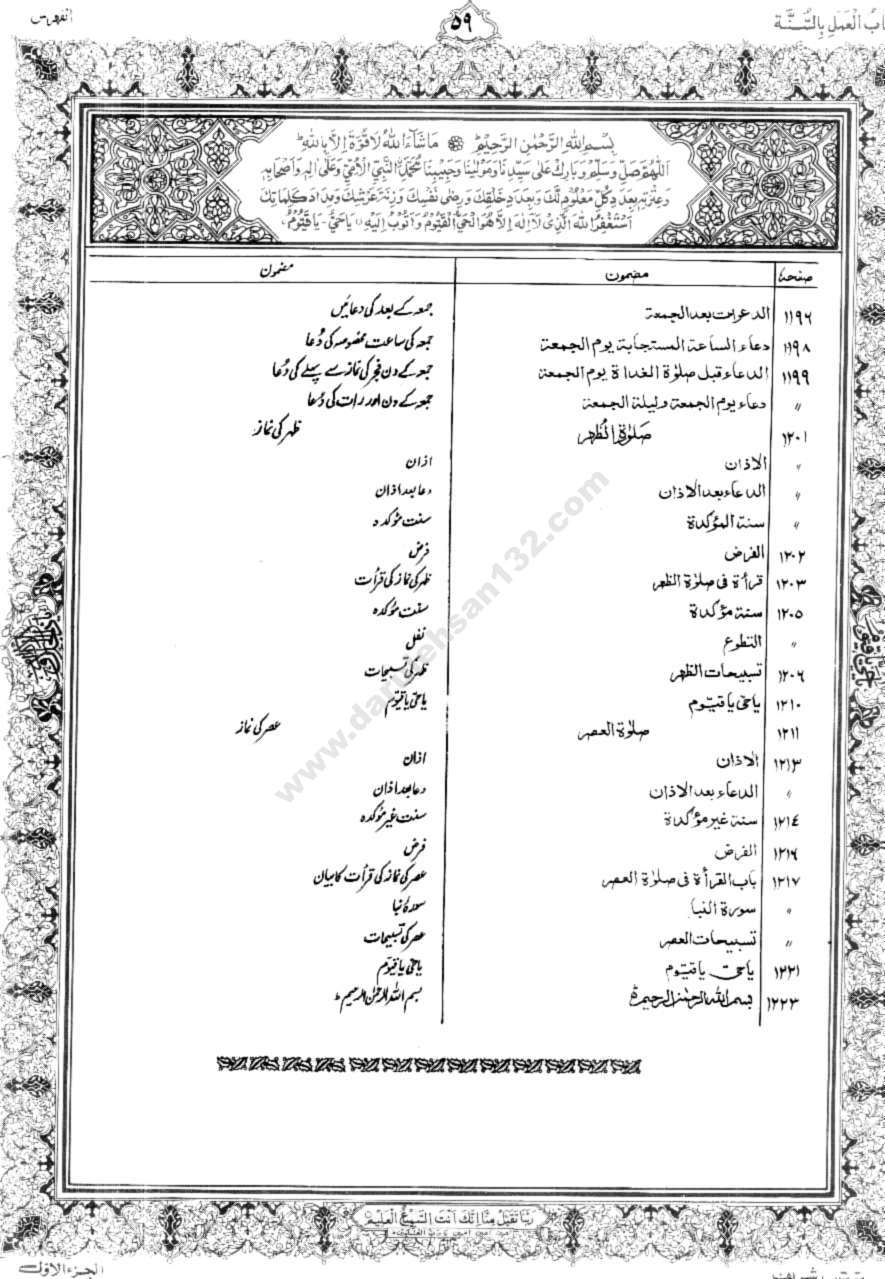 ۵۹
بُ الْعَمَلِ بِالسُّنَّة
بِسْمِ اللهِ الرَّحْمٰنِ الرَّحِيْمِ مَا شَآءَ اللهُ لَا قُوَّةَ اِلَّا بِاللهِ
اَللّٰهُمَّ صَلِّ وَسَلِّمْ وَبَارِكْ عَلٰى سَيِّدِنَا وَمَوْلٰينَا وَحَبِيْبِنَا مُحَمَّدِ النَّبِيِّ الْاُمِّيِّ وَعَلٰى اٰلِهٖ وَاَصْحَابِهٖ
وَعِتْرَتِهٖ بِعَدَدِ كُلِّ مَعْلُوْمٍ لَّكَ وَبِعَدَدِ خَلْقِكَ وَرِضٰى نَفْسِكَ وَزِنَةَ عَرْشِكَ وَمِدَادَ كَلِمَاتِكَ
اَسْتَغْفِرُ اللهَ الَّذِىْ لَا اِلٰهَ اِلَّا هُوَ الْحَىُّ الْقَيُّوْمُ وَاَتُوْبُ اِلَيْهِ يَا حَىُّ يَا قَيُّوْمُ
صفحہ مضمون مضمون
۱۱۹۶ الدعوات بعد الجمعة جمعہ کے بعد کی دعائیں
۱۱۹۸ دعاء الساعة المستجابة يوم الجمعة جمعہ کی ساعت مخصوصہ کی دُعا
۱۱۹۹ الدعاء قبل صلوٰة الغداة يوم الجمعة جمعہ کے دن فجر کی نماز سے پہلے کی دُعا
〃 دعاء يوم الجمعة وليلة الجمعة جمعہ کے دن اور رات کی دُعا
۱۲۰۱ صلوٰة الظهر ظہر کی نماز
〃 الاذان اذان
〃 الدعاء بعد الاذان دعا بعد اذان
〃 سنة المؤكدة سنت مؤکدہ
۱۲۰۲ الفرض فرض
۱۲۰۳ قرأة فى صلوٰة الظهر ظہر کی نماز کی قرأت
۱۲۰۵ سنة مؤكدة سنت مؤکدہ
〃 التطوع نفل
۱۲۰۶ تسبيحات الظهر ظہر کی تسبیحات
۱۲۱۰ ياحى ياقيّوم یاحیّ یاقیّوم
۱۲۱۱ صلوٰة العصر عصر کی نماز
۱۲۱۳ الاذان اذان
〃 الدعاء بعد الاذان دعا بعد اذان
۱۲۱٤ سنة غير مؤكدة سنت غیر مؤکدہ
۱۲۱۶ الفرض فرض
۱۲۱۷ باب القرأة فى صلوٰة العصر عصر کی نماز کی قرأت کا بیان
〃 سورة النبا سورۂ نبا
〃 تسبيحات العصر عصر کی تسبیحات
۱۲۲۱ ياحى ياقيّوم یاحیّ یاقیّوم
۱۲۲۳ بسم الله الرحمٰن الرحيم بسم اللہ الرحمٰن الرحیم ط
www.darulehsan132.com
رَبَّنَا تَقَبَّلْ مِنَّا اِنَّكَ اَنْتَ السَّمِيْعُ الْعَلِيْمُ
الجزء الاوّل